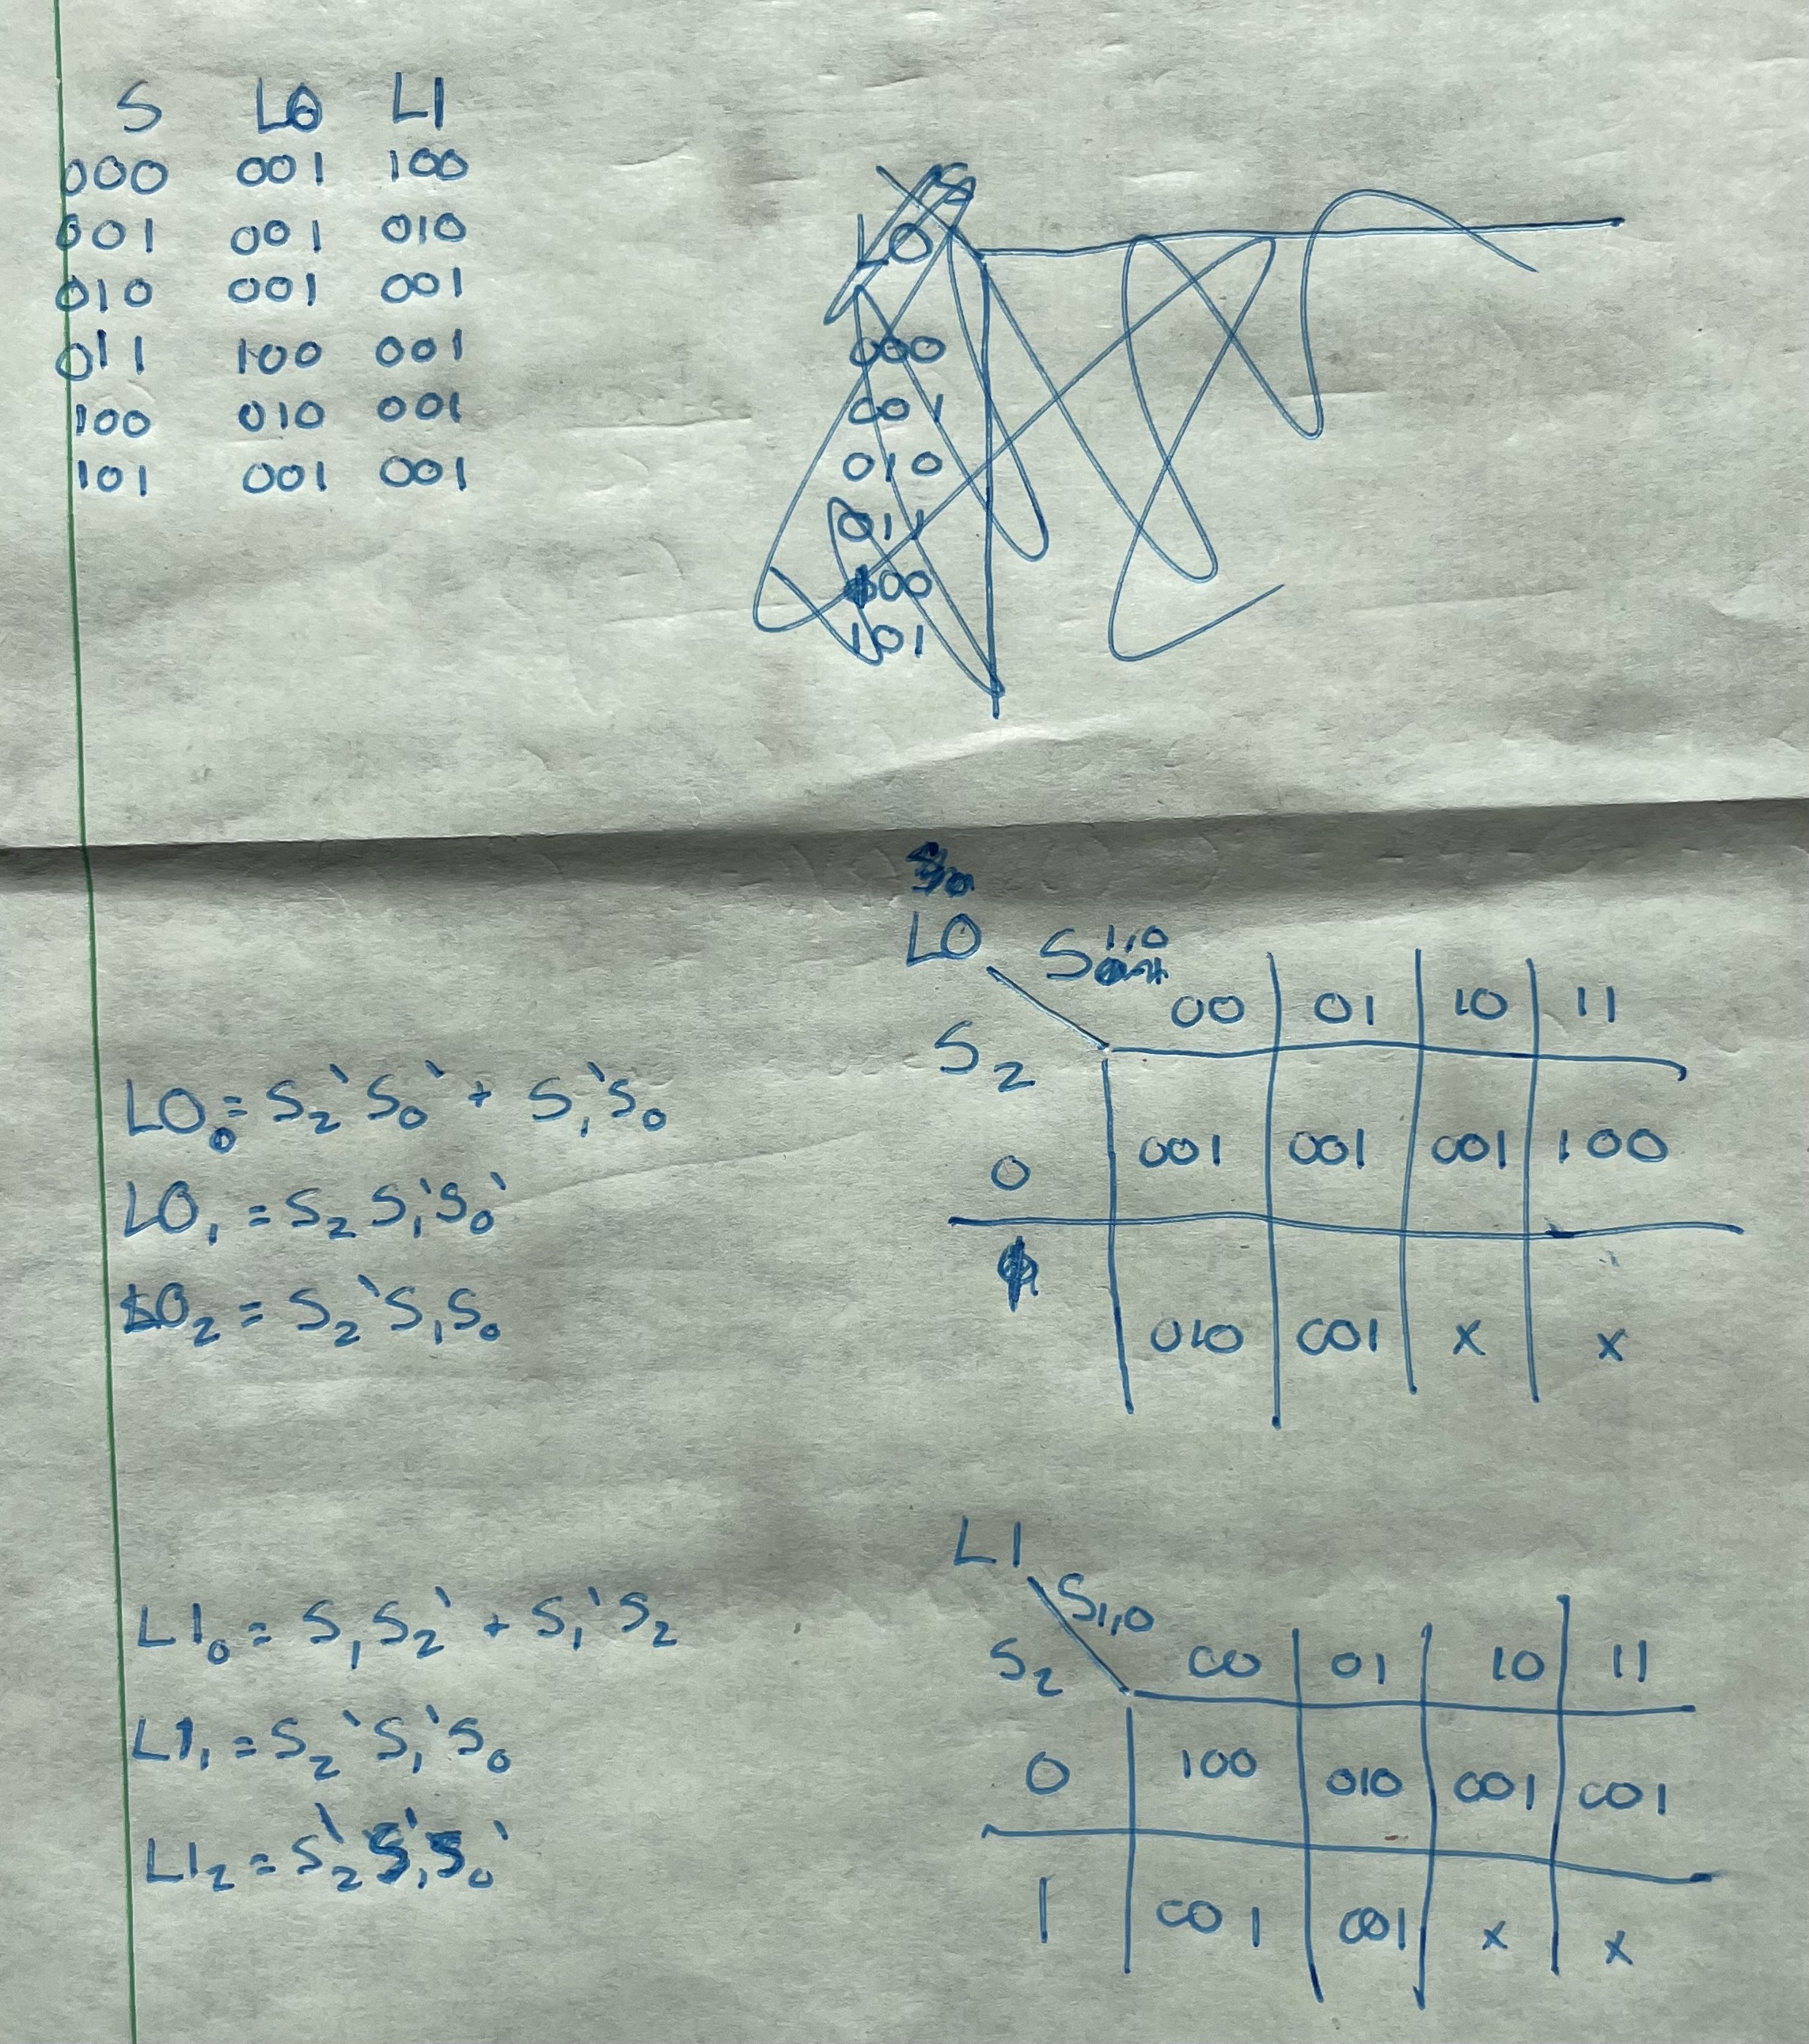 S L0 L1
000 001 100
001 001 010
010 001 001
011 100 001
100 010 001
101 001 001
L0
000
001
010
011
100
101
L0 S1,0
S2 00 01 10 11
0 001 001 001 100
1 010 001 x x
L0₀ = S₂`S₀` + S₁`S₀
L0₁ = S₂S₁`S₀`
L0₂ = S₂`S₁S₀
L1 S1,0
S2 00 01 10 11
0 100 010 001 001
1 001 001 x x
L1₀ = S₁S₂` + S₁`S₂
L1₁ = S₂`S₁`S₀
L1₂ = S₂`S₁`S₀`